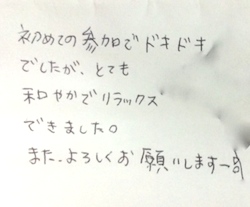 初めての参加でドキドキ
でしたが、とても
和やかでリラックス
できました。
また、よろしくお願いします